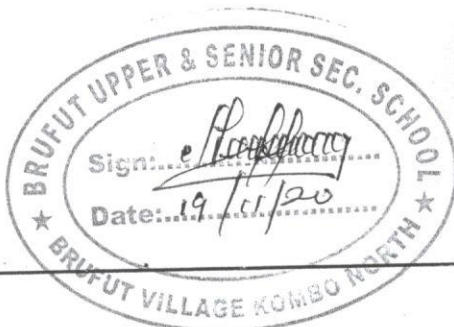 BRUFUT UPPER & SENIOR SEC. SCHOOL
Sign:
Date: 19/11/20
★ BRUFUT VILLAGE KOMBO NORTH ★